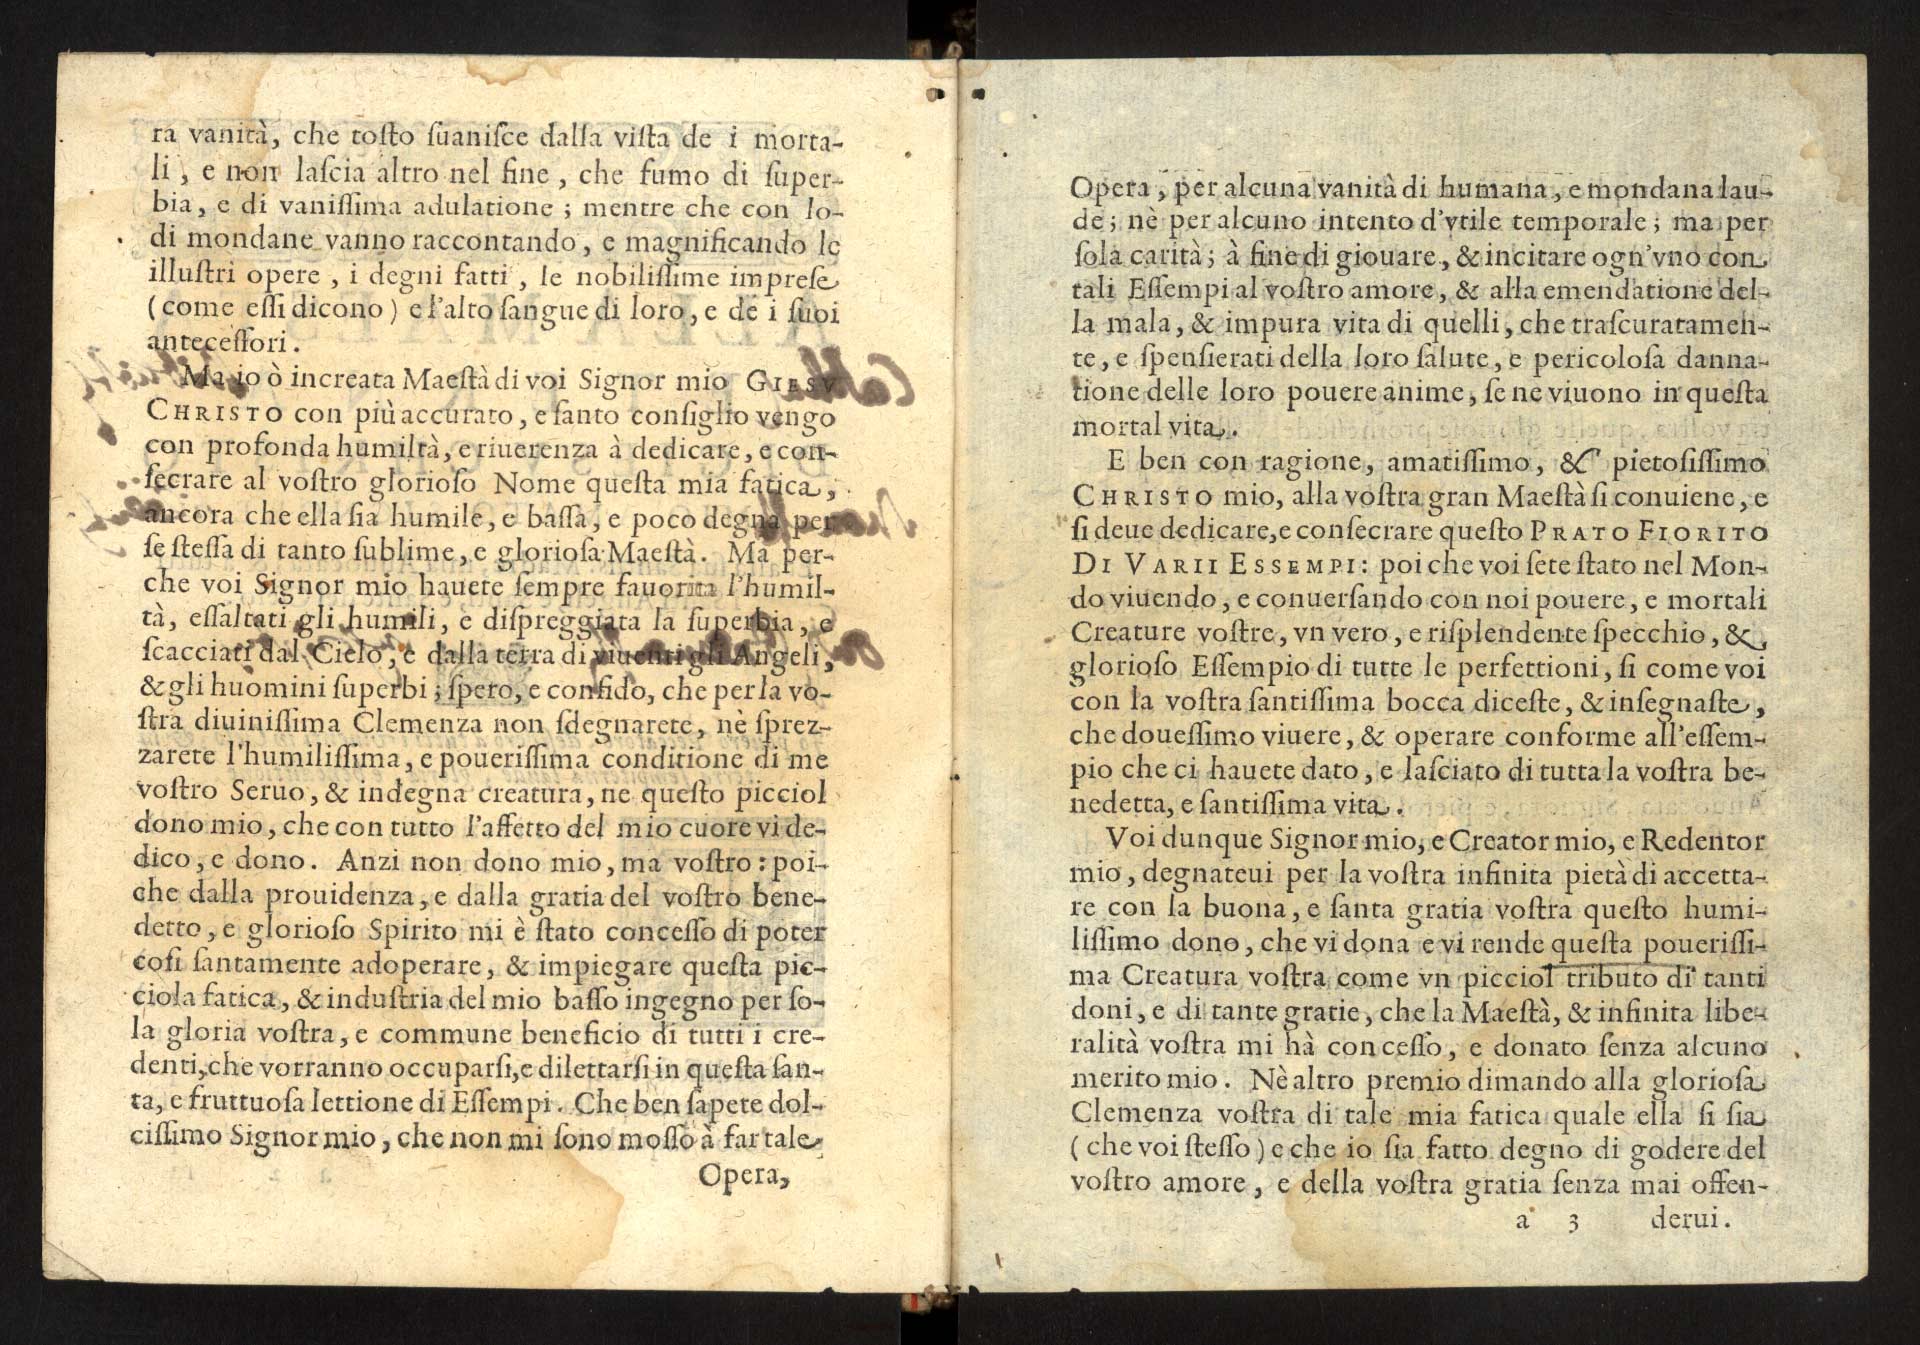 ra vanità, che toſto ſuaniſce dalla viſta de i morta-
li, e non laſcia altro nel fine, che fumo di ſuper-
bia, e di vaniſſima adulatione; mentre che con lo-
di mondane vanno raccontando, e magnificando le
illuſtri opere, i degni fatti, le nobiliſſime impreſe
(come eſſi dicono) e l'alto ſangue di loro, e de i ſuoi
anteceſſori.
Ma io ò increata Maeſtà di voi Signor mio GIESV
CHRISTO con più accurato, e ſanto conſiglio vengo
con profonda humiltà, e riuerenza à dedicare, e con-
ſecrare al voſtro glorioſo Nome queſta mia fatica,
ancora che ella ſia humile, e baſſa, e poco degna per
ſe ſteſſa di tanto ſublime, e glorioſa Maeſtà. Ma per-
che voi Signor mio hauete ſempre fauorita l'humil-
tà, eſſaltati gli humili, e diſpreggiata la ſuperbia, e
ſcacciati dal Cielo, e dalla terra di viuenti gli Angeli,
& gli huomini ſuperbi; ſpero, e confido, che per la vo-
ſtra diuiniſſima Clemenza non ſdegnarete, nè ſprez-
zarete l'humiliſſima, e poueriſſima conditione di me
voſtro Seruo, & indegna creatura, ne queſto picciol
dono mio, che con tutto l'affetto del mio cuore vi de-
dico, e dono. Anzi non dono mio, ma voſtro: poi-
che dalla prouidenza, e dalla gratia del voſtro bene-
detto, e glorioſo Spirito mi è ſtato conceſſo di poter
coſi ſantamente adoperare, & impiegare queſta pic-
ciola fatica, & induſtria del mio baſſo ingegno per ſo-
la gloria voſtra, e commune beneficio di tutti i cre-
denti, che vorranno occuparſi, e dilettarſi in queſta ſan-
ta, e fruttuoſa lettione di Eſſempi. Che ben ſapete dol-
ciſſimo Signor mio, che non mi ſono moſſo à far tale
Opera,
Opera, per alcuna vanità di humana, e mondana lau-
de; nè per alcuno intento d'vtile temporale; ma per
ſola carità; à fine di giouare, & incitare ogn'vno con
tali Eſſempi al voſtro amore, & alla emendatione del-
la mala, & impura vita di quelli, che traſcuratamen-
te, e ſpenſierati della loro ſalute, e pericoloſa danna-
tione delle loro pouere anime, ſe ne viuono in queſta
mortal vita.
E ben con ragione, amatiſſimo, & pietoſiſſimo
CHRISTO mio, alla voſtra gran Maeſtà ſi conuiene, e
ſi deue dedicare, e conſecrare queſto PRATO FIORITO
DI VARII ESSEMPI: poi che voi ſete ſtato nel Mon-
do viuendo, e conuerſando con noi pouere, e mortali
Creature voſtre, vn vero, e riſplendente ſpecchio, &
glorioſo Eſſempio di tutte le perfettioni, ſi come voi
con la voſtra ſantiſſima bocca diceſte, & inſegnaſte,
che doueſſimo viuere, & operare conforme all'eſſem-
pio che ci hauete dato, e laſciato di tutta la voſtra be-
nedetta, e ſantiſſima vita.
Voi dunque Signor mio, e Creator mio, e Redentor
mio, degnateui per la voſtra infinita pietà di accetta-
re con la buona, e ſanta gratia voſtra queſto humi-
liſſimo dono, che vi dona e vi rende queſta poueriſſi-
ma Creatura voſtra come vn picciol tributo di tanti
doni, e di tante gratie, che la Maeſtà, & infinita libe-
ralità voſtra mi hà conceſſo, e donato ſenza alcuno
merito mio. Nè altro premio dimando alla glorioſa
Clemenza voſtra di tale mia fatica quale ella ſi ſia
(che voi ſteſſo) e che io ſia fatto degno di godere del
voſtro amore, e della voſtra gratia ſenza mai offen-
a 3 derui.